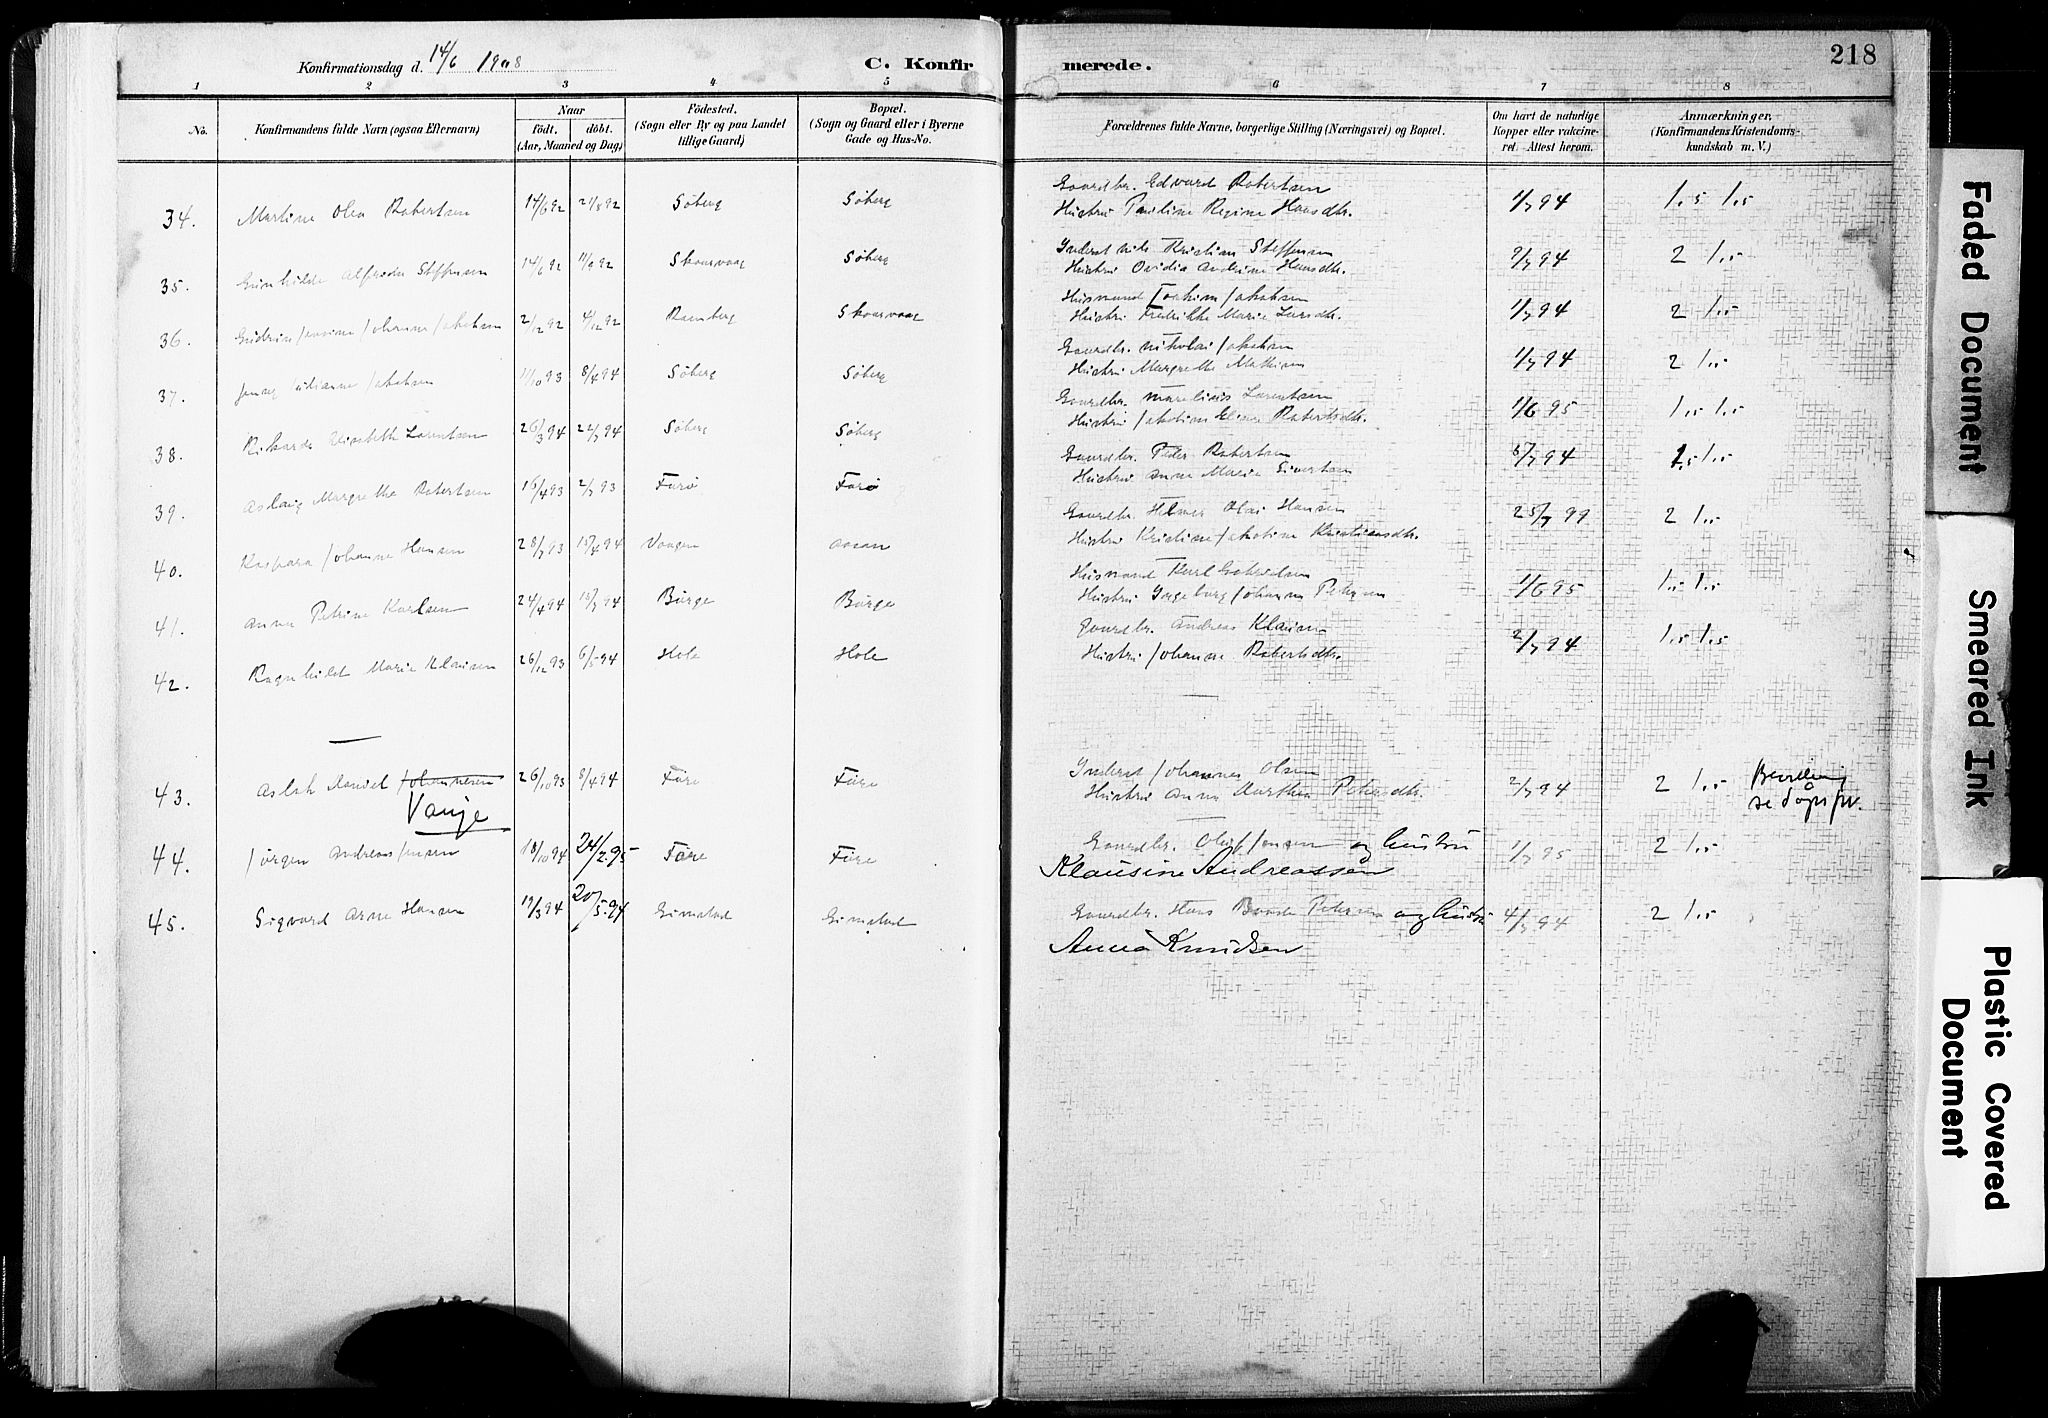 Konfirmationsdag d. 14/6 1908
C. Konfirmerede.
218
1 2 3 4 5 6 7 8
No.
Konfirmandens fulde Navn (ogsaa Efternavn)
Naar
födt.
döbt.
(Aar, Maaned og Dag)
Födested.
(Sogn eller By og paa Landet
tillige Gaard)
Bopæl.
(Sogn og Gaard eller i Byerne
Gade og Hus-No.
Forældrenes fulde Navne, borgerlige Stilling (Næringsvei) og Bopæl.
Om havt de naturlige
Kopper eller vakcine-
ret. Attest herom.
Anmærkninger.
(Konfirmandens Kristendoms-
kundskab m. V.)
34. Martine Olea Robertsen 14/6 92 21/8 92 Söberg Söberg Gaardbr. Edvard Robertsen 1/7 94 1,5 1,5
Hustru Pauline Regine Hansdtr.
35. Gunhilde Alfrida Steffensen 14/6 92 11/9 92 Skaarvaag Söberg Inderst Nils Kristian Steffensen 9/7 94 2 1,5
Hustru Ovidia Andrine Hansdtr.
36. Gudrun Jensine Johanne Jakobsen 2/12 92 4/12 92 Ramberg Skaarvaag Husmand Joakim Jakobsen 1/7 94 2 1,5
Hustru Fredrikke Marie Larsdtr.
37. Jenny Julianne Jakobsen 11/10 93 8/4 94 Söberg Söberg Gaardbr. Nikolai Jakobsen 1/7 94 2 1,5
Hustru Margrethe Mathisen
38. Rikarda Elisabeth Lorentsen 26/3 94 22/7 94 Söberg Söberg Gaardbr. Marelius Lorentsen 1/6 95 1,5 1,5
Hustru Jakobine Robertsdtr.
39. Aslaug Margrethe Robertsen 16/4 93 2/7 93 Forö Forö Gaardbr. Peder Robertsen 5/7 94 1,5 1,5
Hustru Anne Marie Sivertsen
40. Kaspara Johanne Hansen 28/7 93 15/4 94 Vaagen Aasan Gaardbr. Helmer Olai Hansen 25/7 99 2 1,5
Hustru Kristine Jakobine Kristiansdtr.
41. Anna Petrine Karlsen 24/4 94 15/7 94 Börge Börge Husmand Karl Gabrielsen 1/6 95 1,5 1,5
Hustru Ingeborg Johanna Petersen
42. Ragnhild Marie Klausen 26/12 93 6/5 94 Hole Hole Gaardbr. Andreas Klausen 2/7 94 1,5 1,5
Hustru Johanne Robertsdtr.
43. Aslak Daniel Johannesen 26/10 93 8/4 94 Före Före Inderst Johannes Olsen 2/7 94 2 1,5 Bevilling
Vange Hustru Anna Dorthea Petersdtr. se dåpspr.
44. Jörgen Andreas Jensen 18/10 94 24/2 95 Före Före Gaardbr. Oluf Jensen og hustru 1/7 95 2 1,5
Klausine Andreassen
45. Sigvard Arne Hansen 19/3 94 20/5 94 Gimstad Gimstad Gaardbr. Hans Petersen og hustru 4/7 94 2 1,5
Anna Knudsen
Faded Document
Smeared Ink
Plastic Covered
Document